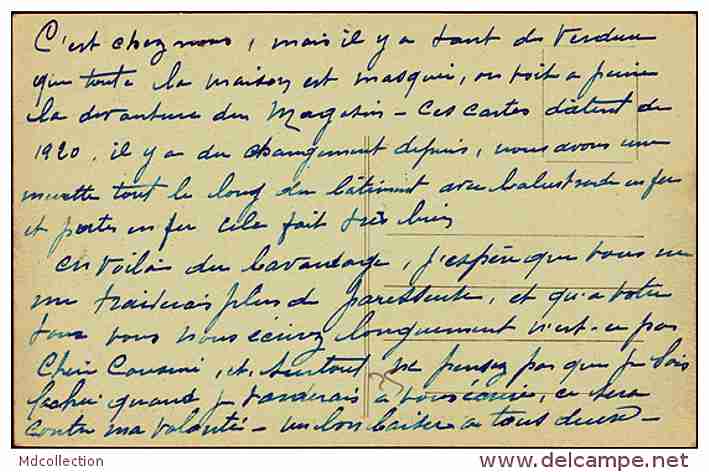 C'est chez nous, mais il y a tant de Verdure
que toute la maison est masquée, on voit a peine
la devanture du Magasin – Ces cartes datent de
1920, il y a du changement depuis, nous avons une
murette tout le long du bâtiment avec balustrade en fer
et portes en fer cela fait très bien
en voilà du bavardage, j'espère que vous ne
me traiterais plus de paresseuse, et qu'a votre
tour vous nous écrirez longuement n'est-ce pas
Chère Cousine, et surtout ne pensez pas que je sois
fachée quand je tarderais a vous écrire, ce sera
contre ma volonté – un bon baiser a tous deux –
Mdcollection
www.delcampe.net